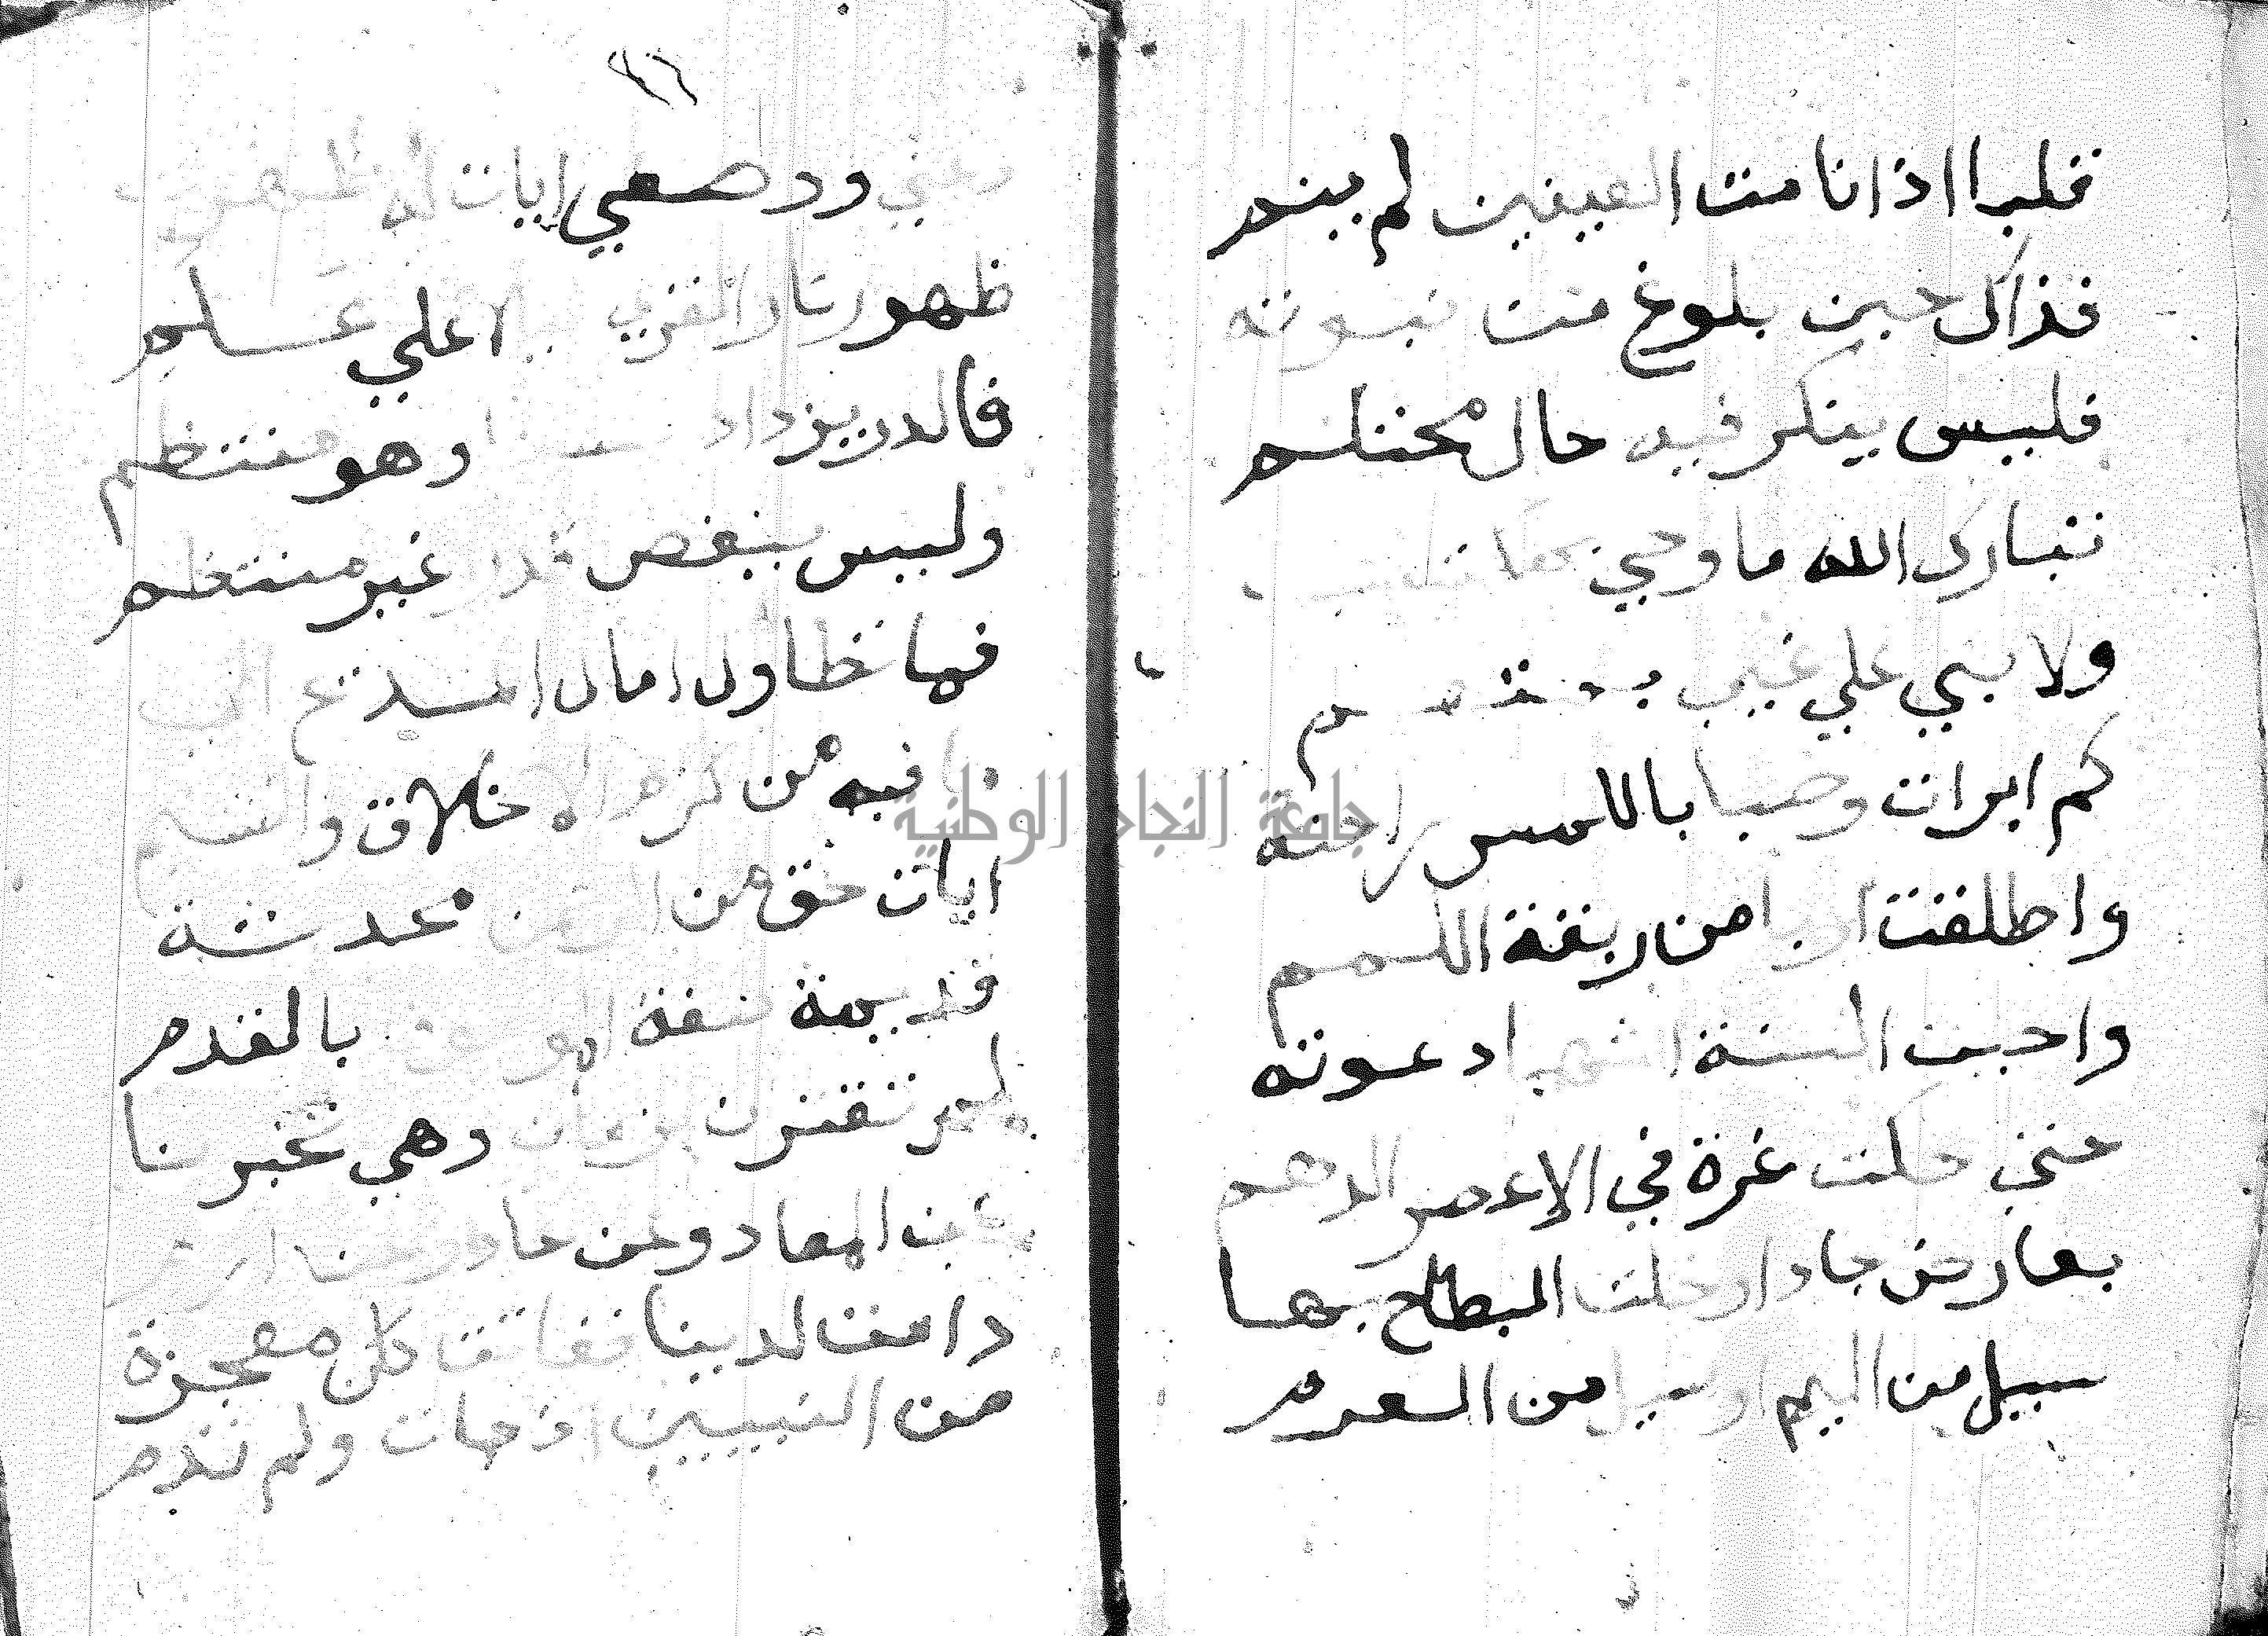 قلبا اذا نامت العينين لم ينم
فذاك حين بلوغ من نبوته
فليس ينكر فيه حال محتلم
تبارك الله ما وحي
ولا نبي علي غيب بمتهم
كم ابرات وصبا باللمس راحته
واطلقت اربا من ربقة اللمم
واحيت السنة الشهبا دعوته
حتي حكت غرة في الاعصر الدهم
بعارض جاد او خلت البطاح بها
سيل من اليم او سيل من العرم
٢٦
دعني ووصفي ايات له ظهرت
ظهور نار القري ليلا علي علم
فالدر يزداد حسنا وهو منتظم
وليس ينقص قدرا غير منتظم
فما تطاول امال المديح الي
ما فيه من كرم الاخلاق والشيم
ايات حق من الرحمن محدثة
قديمة صفة الموصوف بالقدم
لم تقترن بزمان وهي تخبرنا
عن المعاد وعن عاد وعن ارم
دامت لدينا ففاقت كل معجزة
من النبيين اذ جات ولم تدم
جامعة النجاح الوطنية